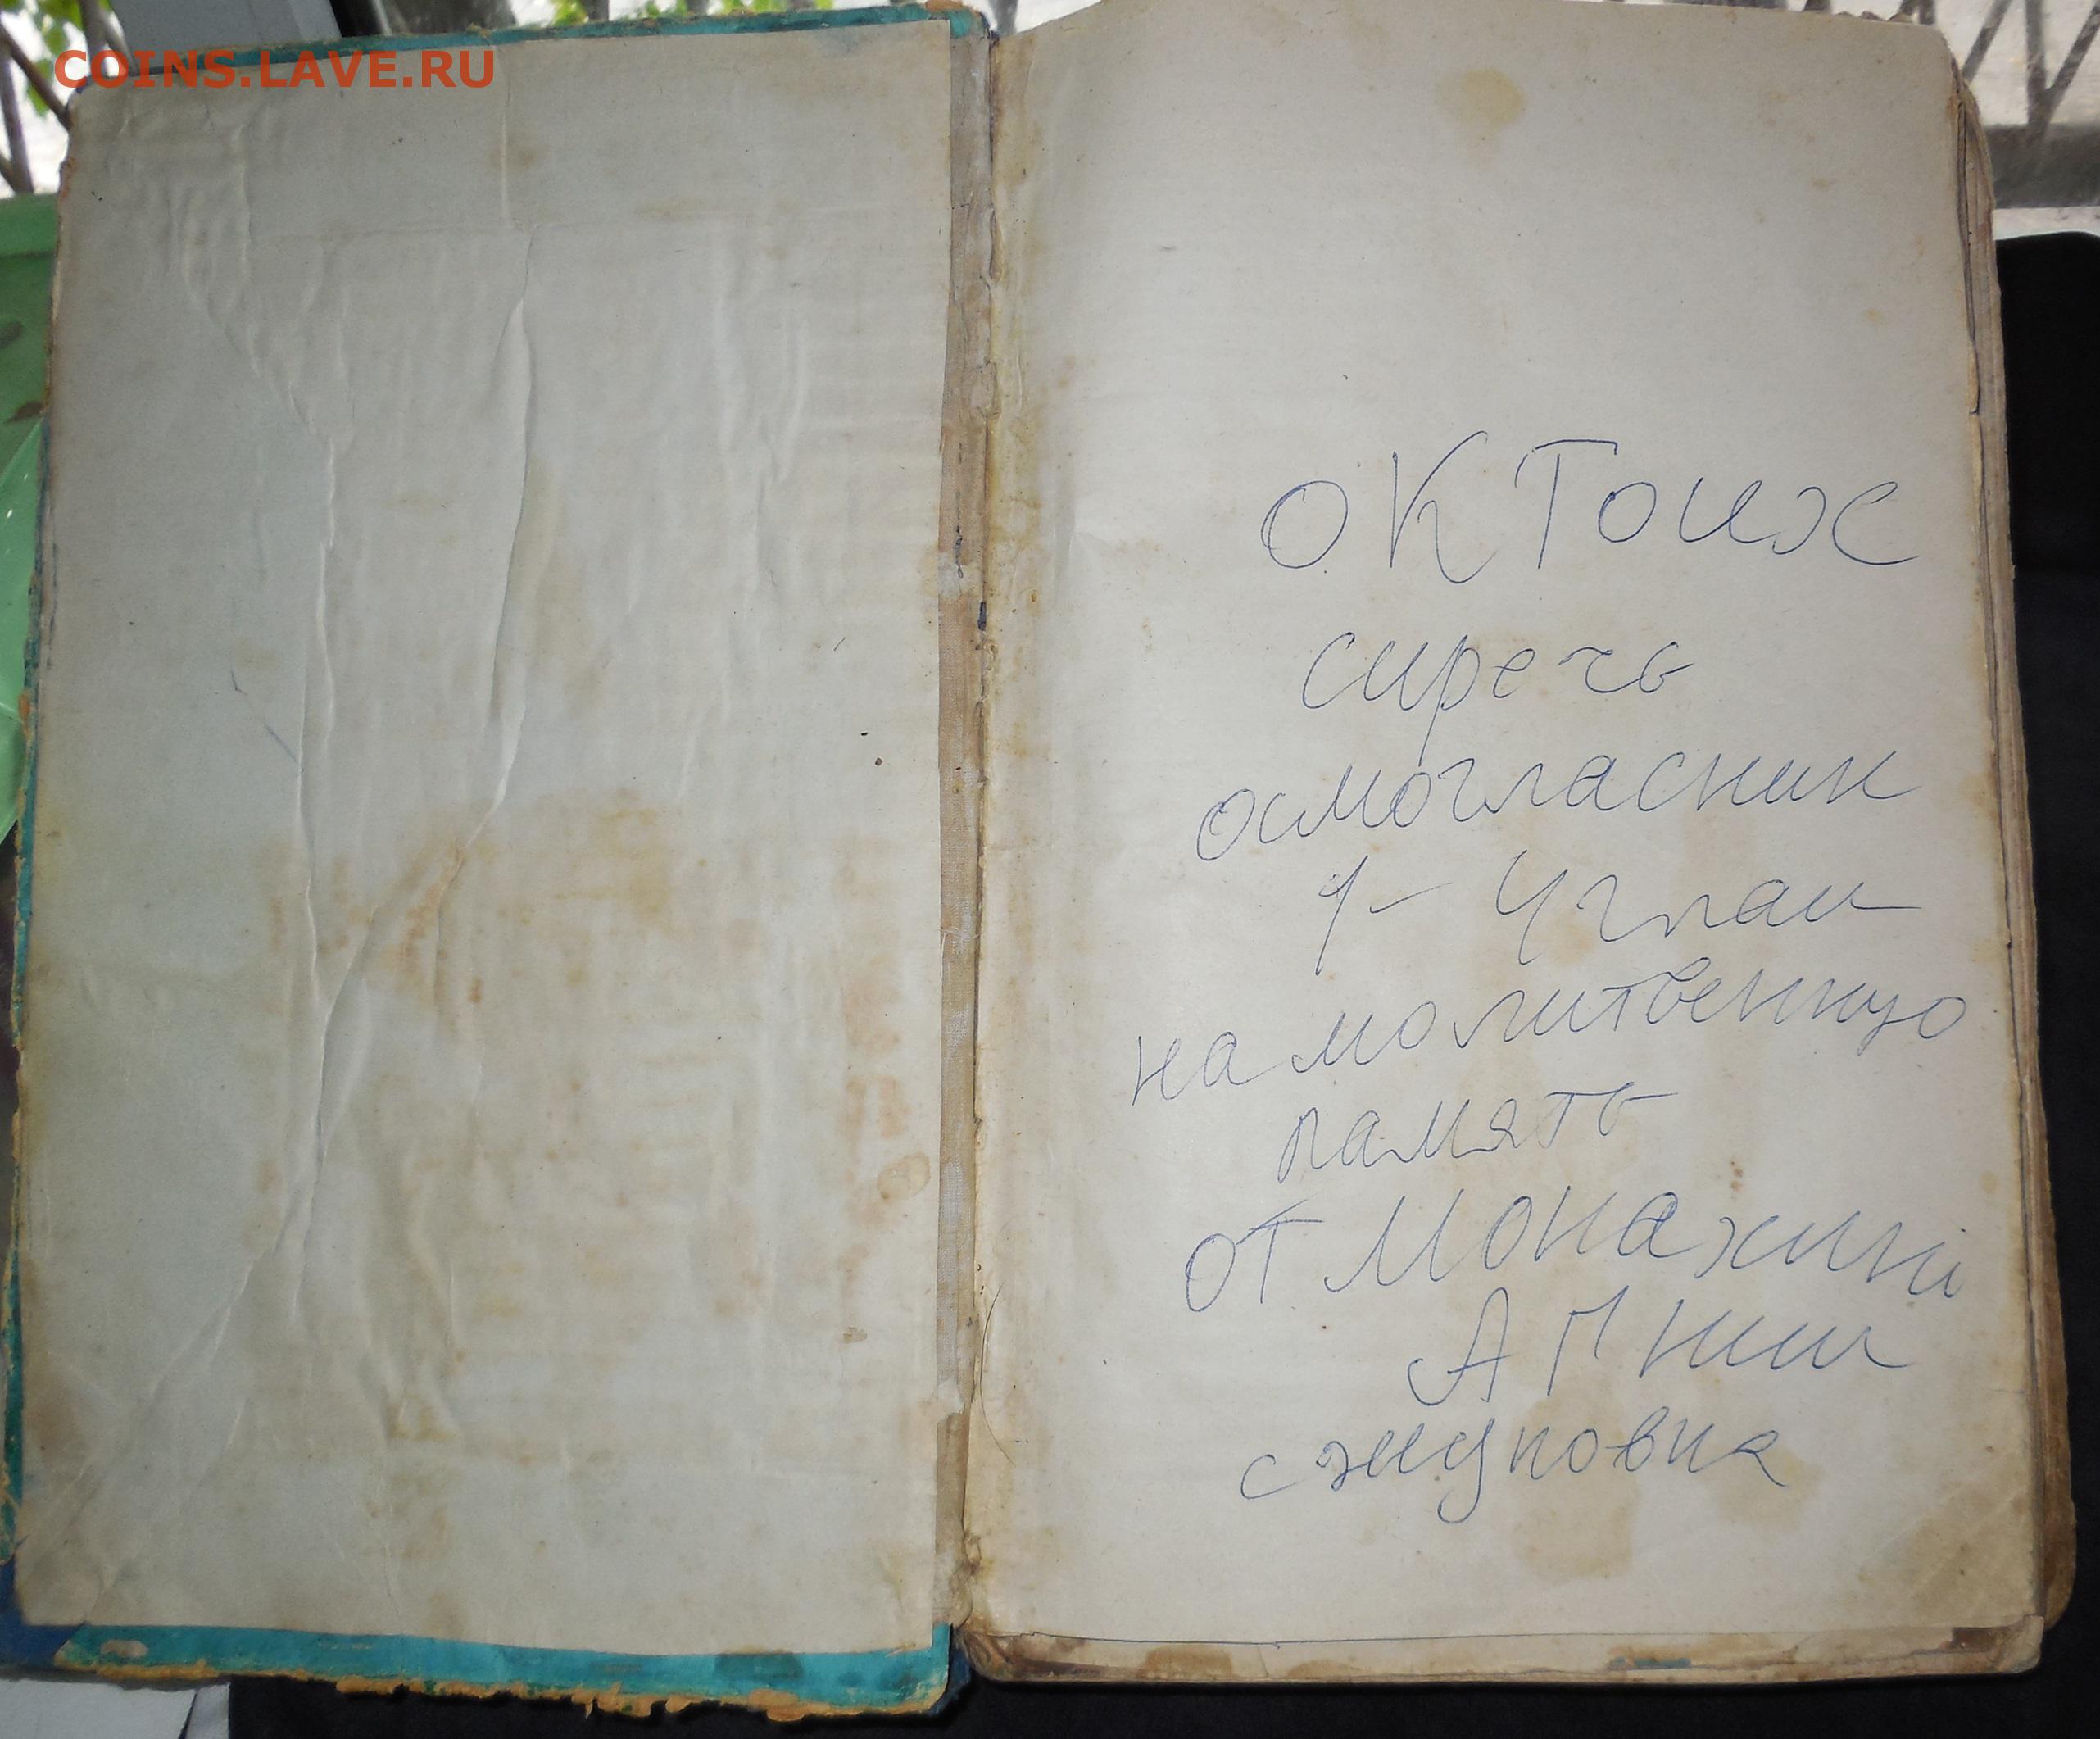 COINS.LAVE.RU
ОКТоих
сиречь
осмогласник
1- 4 глас
на молитвенную
память
от Монахині
АГнии
с жуковка